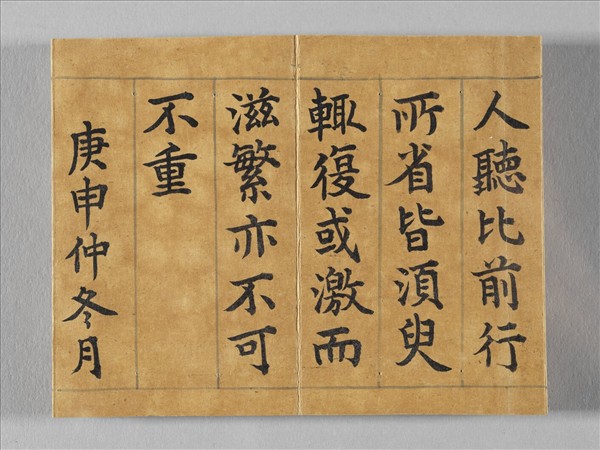 人聽比前行
所省皆須臾
輒復或激而
滋繁亦不可
不重
庚申仲冬月